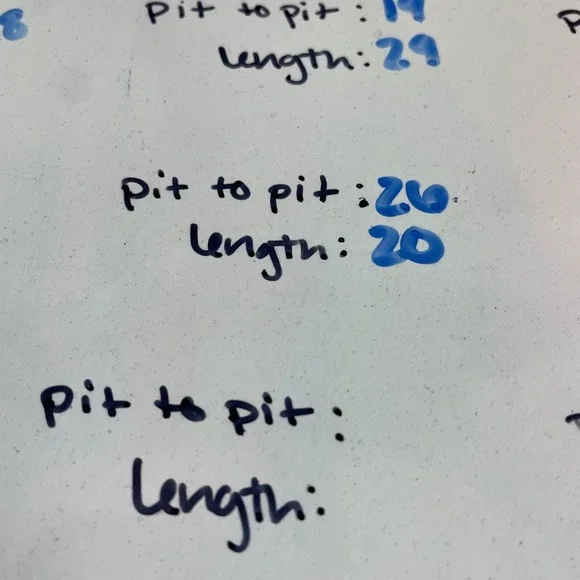 pit to pit: 19
length: 29
pit to pit: 26
length: 20
pit to pit:
length: